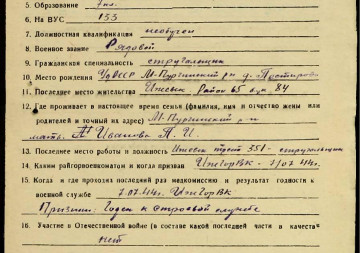 5. Образование
6. На ВУС 133
7. Должностная квалификация необучен
8. Военное звание Рядовой
9. Гражданская специальность стругальщик
10. Место рождения УдАССР М-Пургинский р-н д.
11. Последнее место жительства Ижевск, Район 65 д. 84
12. Где проживает в настоящее время семья (фамилия, имя и отчество жены или
родителей и точный их адрес) М-Пургинский р-н
мать Иванова Т. И.
13. Последнее место работы и должность Ижевск трест 351 - стругальщик
14. Каким райгорвоенкоматом и когда призван ИжГорВК - 7/07 44г.
15. Когда и где проходил последний раз медкомиссию и результат годности к
военной службе 7.07.44г. ИжГорВК
Признан: Годен к строевой службе
16. Участие в Отечественной войне (в составе какой последней части в качеств
нет